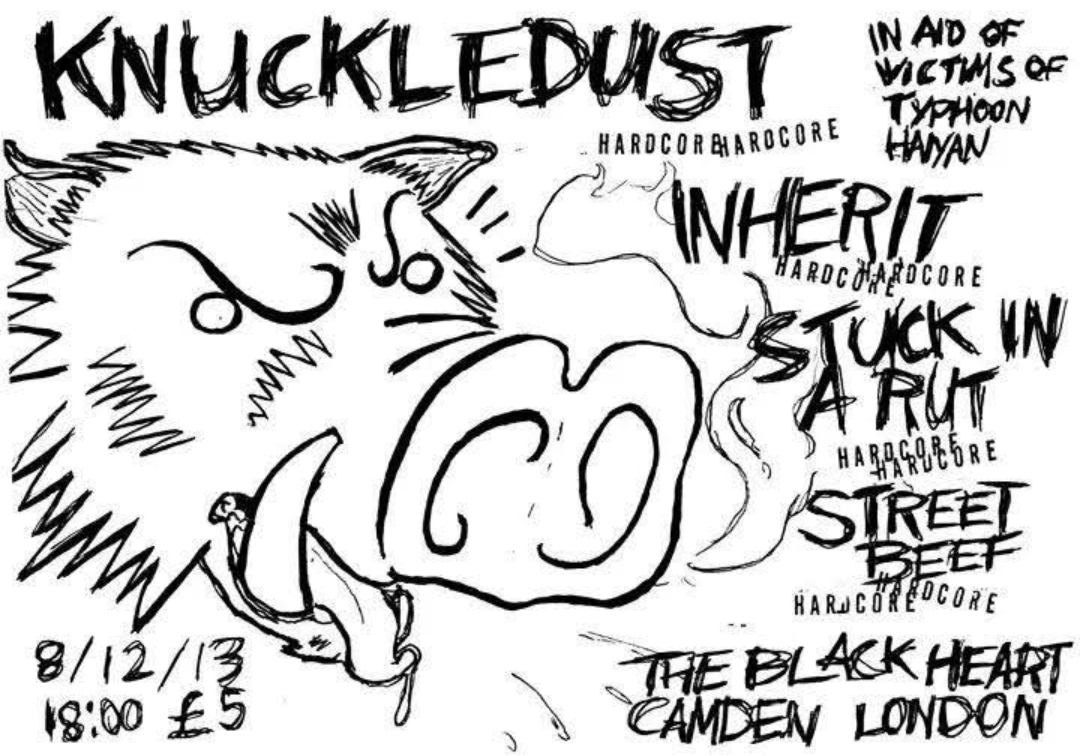 KNUCKLEDUST
IN AID OF
VICTIMS OF
TYPHOON
HAIYAN
HARDCORE HARDCORE
INHERIT
HARDCORE HARDCORE
STUCK IN
A RUT
HARDCORE
HARDCORE
STREET
BEEF
HARDCORE
HARDCORE
8/12/13
18:00 £5
THE BLACK HEART
CAMDEN LONDON